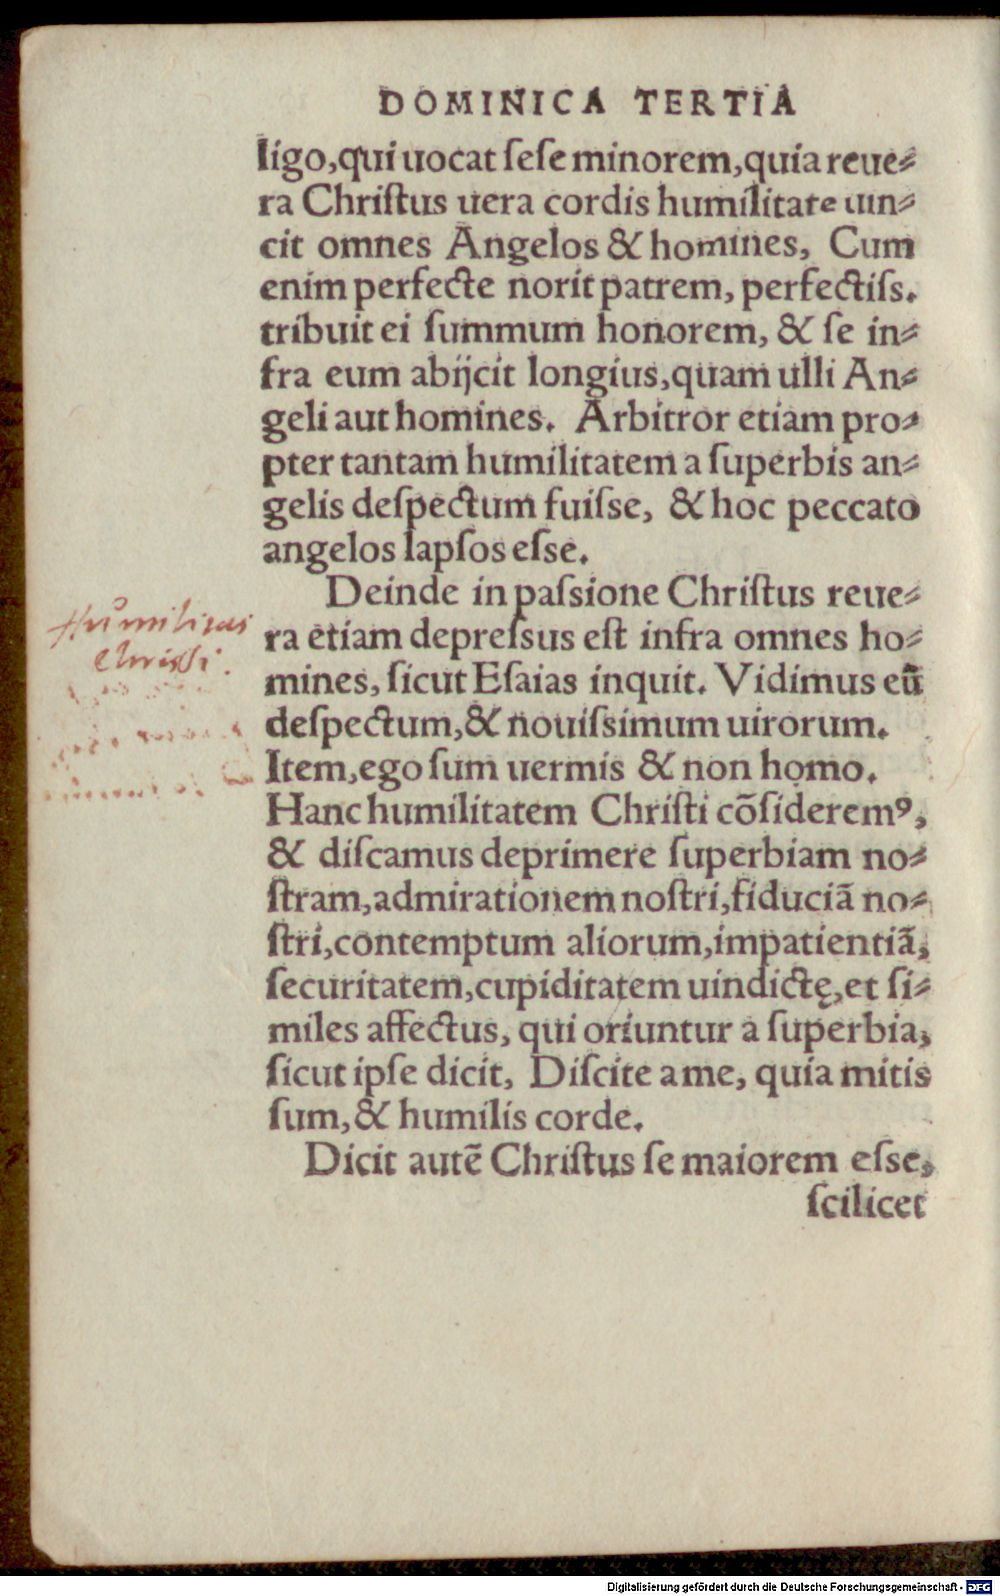 DOMINICA TERTIA
ligo,qui uocat ſeſe minorem,quia reue⸗
ra Chriſtus uera cordis humilitate uin⸗
cit omnes Angelos & homines, Cum
enim perfecte norit patrem, perfectiſs.
tribuit ei ſummum honorem, & ſe in⸗
fra eum abijcit longius,quam ulli An⸗
geli aut homines. Arbitror etiam pro⸗
pter tantam humilitatem a ſuperbis an⸗
gelis deſpectum fuiſse, & hoc peccato
angelos lapſos eſse.
Deinde in paſsione Chriſtus reue⸗
Humilitas
ra etiam depreſsus eſt infra omnes ho⸗
Christi.
mines, ſicut Eſaias inquit. Vidimus eū
deſpectum,& nouiſsimum uirorum.
Item,ego ſum uermis & non homo.
Hanc humilitatem Chriſti cōſideremꝰ,
& diſcamus deprimere ſuperbiam no⸗
ſtram,admirationem noſtri,fiduciā no⸗
ſtri,contemptum aliorum,impatientiā,
ſecuritatem,cupiditatem uindictę,et ſi⸗
miles affectus, qui oriuntur a ſuperbia,
ſicut ipſe dicit, Diſcite a me, quia mitis
ſum,& humilis corde.
Dicit autē Chriſtus ſe maiorem eſse,
ſcilicet
Digitalisierung gefördert durch die Deutsche Forschungsgemeinschaft - DFG